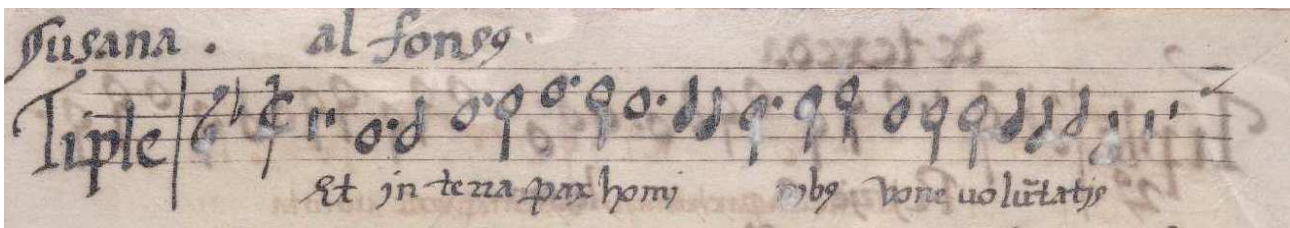 Susana . al fonsꝰ.
Tiple
Et in terra pax homi nibꝰ bone volũtatis